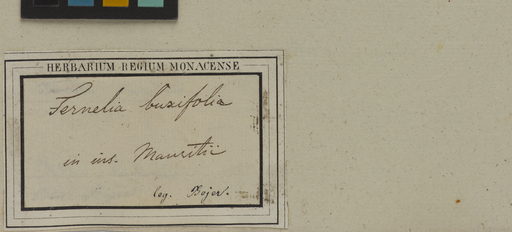 HERBARIUM REGIUM MONACENSE
Fernelia buxifolia
in ins. Mauritii
leg. Bojer.